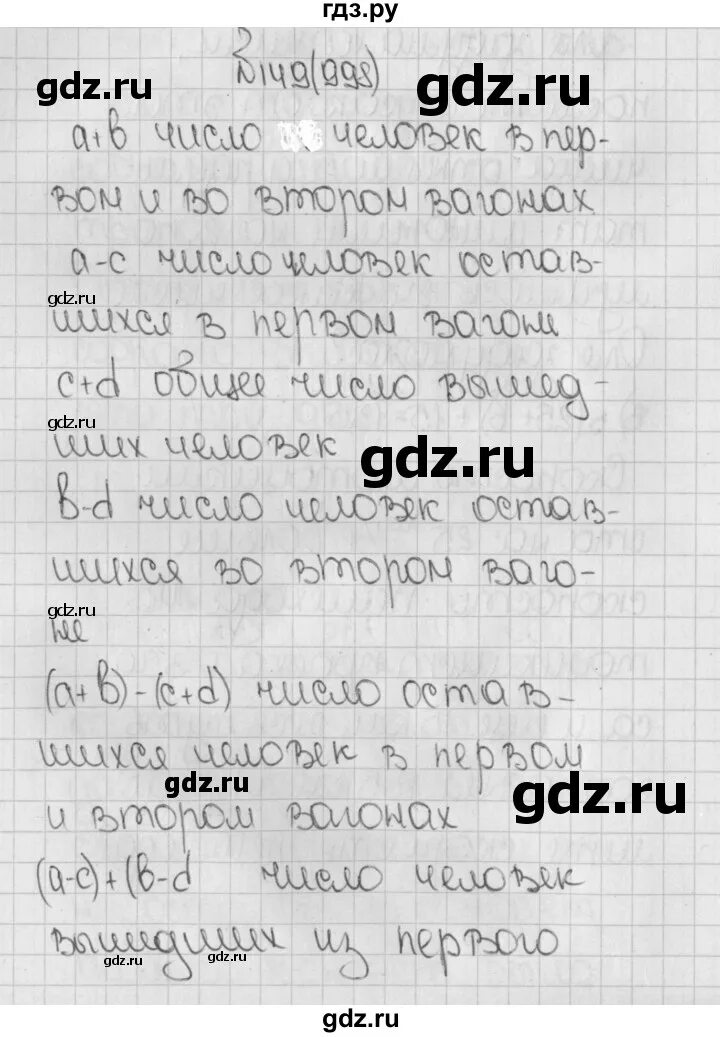 гдз.ру
№149(998)
gdz.ru
gdz.ru
a+b число человек в пер-
вом и во втором вагонах
a-c число человек остав-
gdz.ru
шихся в первом вагоне
c+d общее число вышед-
ших человек
gdz.ru
gdz.ru
b-d число человек остав-
шихся во втором ваго-
gdz.ru
не
(a+b)-(c+d) число остав-
шихся человек в первом
gdz.ru
gdz.ru
и втором вагонах
(a-c)+(b-d число человек
вышедших из первого
gdz.ru
gdz.ru
gdz.ru